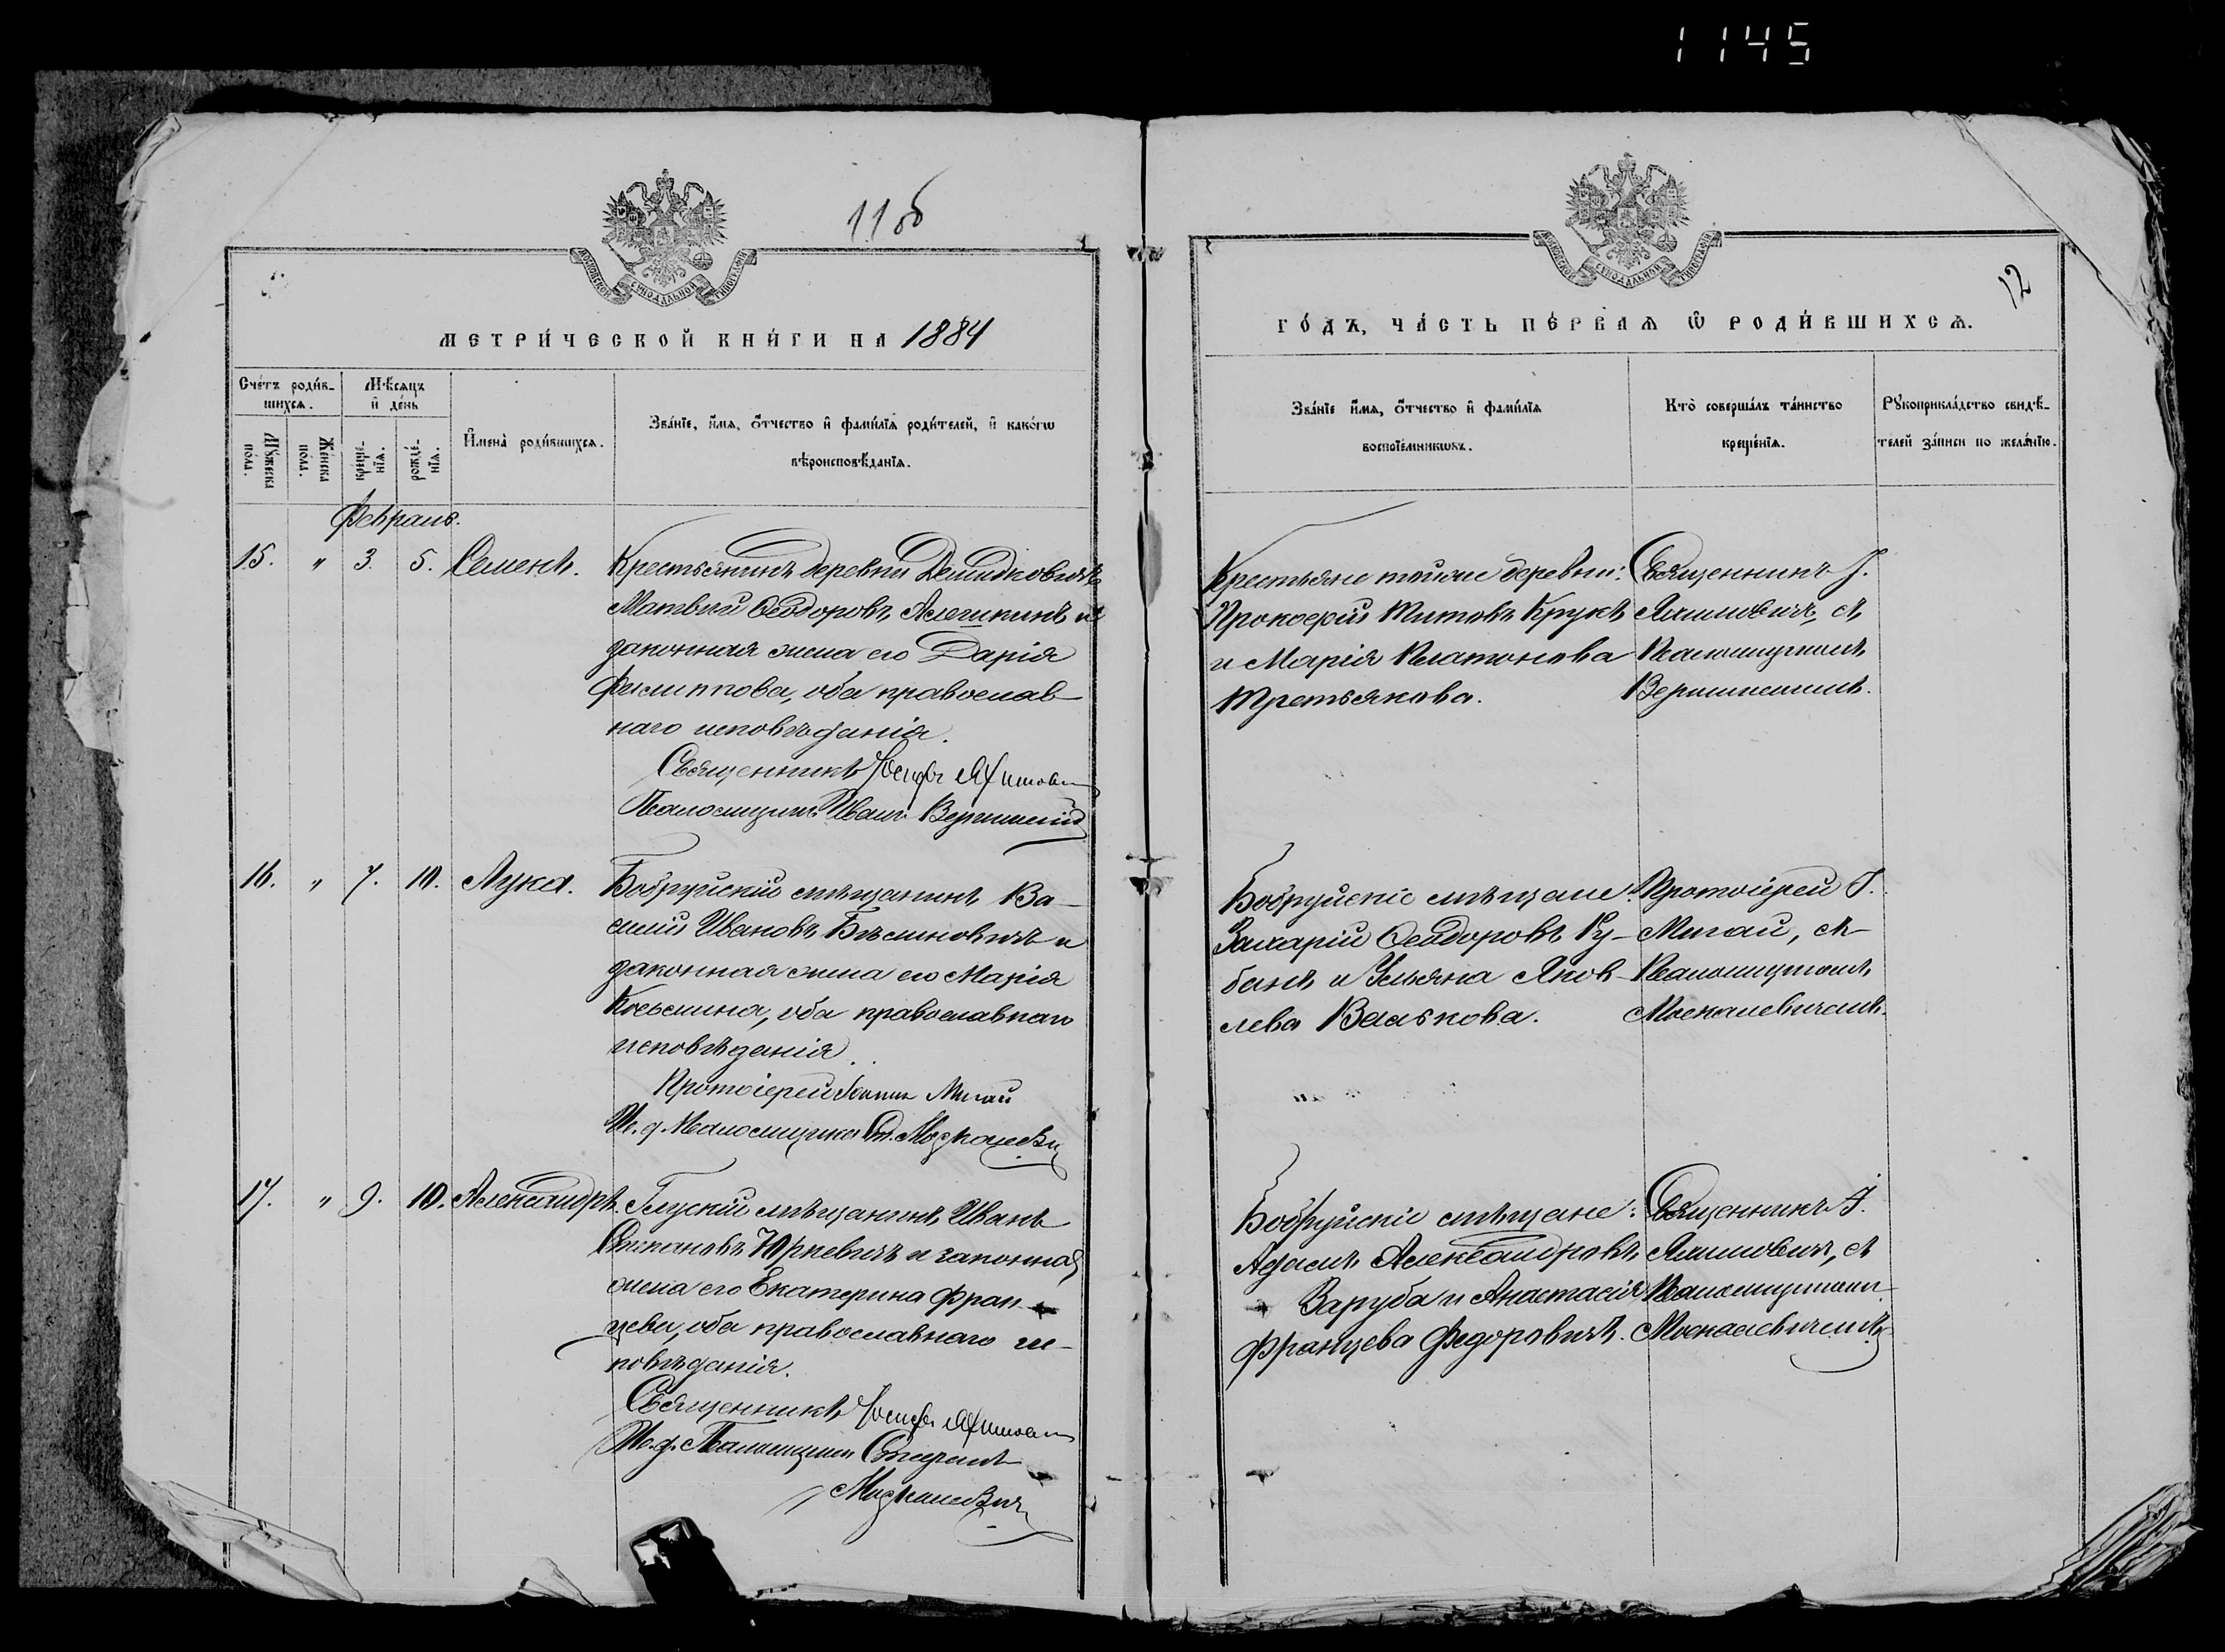 1145
11об
12
МЕТРИ́ЧЕСКОЙ КНИ́ГИ НА 1884
ГО́ДЪ, ЧА́СТЬ ПЕ́РВАѦ Ѡ҆ РОДИ́ВШИХСѦ.
Сче́тъ роди́в-
шихсѧ.
Мꙋ́жеска
пола.
Же́нска
пола.
Мѣ́сѧцъ
и҆ де́нь
креще́-
нїѧ.
рожде́-
нїѧ.
И҆мена̀ роди́вшихсѧ.
Зва́нїе, и҆́мѧ, ѻ҆́тчество и҆ фами́лїѧ роди́телей, и҆ како́гѡ
вѣроисповѣ́данїѧ.
Зва́нїе и҆́мѧ, ѻ҆́тчество и҆ фами́лїѧ
воспрїе́мникѡвъ.
Кто̀ соверша́лъ та́инство
креще́нїѧ.
Рꙋкоприкла́дство свидѣ́-
телей за́писи по жела́нїю.
Февраль.
15. " 3. 5. Семенъ.
Крестьянинъ деревни
Матвѣй Ѳеодоровъ и
законная жена его Дарія
Филиппова, оба православ-
наго исповѣданія.
Священникъ Іосифъ
Псаломщикъ Иванъ
Крестьяне тойже деревни:
Прокофій Титовъ Крукъ
и Марія Платонова
Третьякова.
Священникъ І.
съ
Псаломщикомъ
16. " 7. 10. Лука.
Бобруйскій мѣщанинъ Ва-
силій Ивановъ и
законная жена его Марія
Косьмина, оба православнаго
исповѣданія.
Протоіерей Іоаннъ Мигай
И. д. Псаломщика Ст.
Бобруйскіе мѣщане:
Захарій Ѳеодоровъ Ку-
банъ и Ульяна Яков-
лева Валькова.
Протоіерей І.
Мигай, съ
Псаломщикомъ
Москалевичемъ.
17. " 9. 10. Александръ.
Глускій мѣщанинъ Иванъ
Степановъ Юркевичъ и законная
жена его Екатерина Фран-
цева, оба православнаго ис-
повѣданія.
Священникъ Іосифъ
И. д. Псаломщика Стефанъ
Бобруйскіе мѣщане:
Адамъ Александровъ
Заруба и Анастасія
Францева Федоровичъ.
Священникъ І.
съ
Псаломщикомъ
Москалевичемъ.